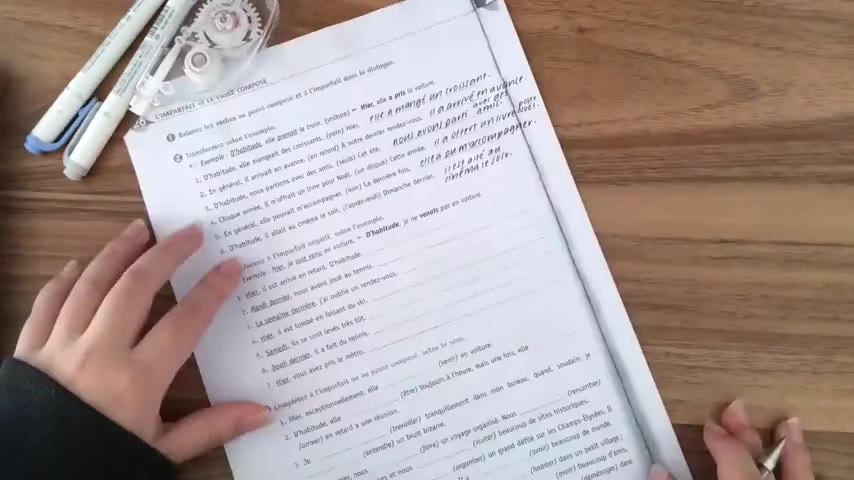 L'IMPARFAIT ET LE PASSÉ COMPOSÉ
1 Relevez les verbes au passé composé et à l'imparfait dans le dialogue.
2 Transformez selon l'exemple.
Exemple : D'habitude, elle prenait le train. (voiture) → Hier, elle a pris la voiture.
1. D'habitude, elle mangeait des croissants. (pain) Hier, elle a mangé un croissant.
2. En général, il arrivait en avance. (en retard) À notre dernier rendez-vous, il a arrivé en avance.
3. D'habitude, nous partions avec des amis. (seuls) Cet été, nous avons parti avec des amis.
4. Chaque année, il m'offrait un livre pour Noël. (un disque) Cette année, il a offert un livre pour Noël.
5. En général, elle pouvait m'accompagner. (non) La dernière fois, elle a pu m'accompagner.
6. D'habitude, il allait au cinéma le soir. (l'après-midi) Dimanche dernier, il est allé au cinéma le soir.
à l'imparfait négatif, selon l'exemple.
Exemple : Hier, je suis venu en voiture. → D'habitude, je ne venais pas en voiture.
1. Hier, il est arrivé en retard. D'habitude,
2. Mardi dernier, nous avons joué au tennis.
3. La semaine dernière, j'ai oublié un rendez-vous.
4. Hier, il est tombé en faisant du ski.
5. Samedi, ils se sont levés très tôt.
6. Jeudi dernier, il a fait du tennis.
7. Hier, vous avez pris le métro.
Complétez à l'imparfait ou au passé composé, selon le sens.
1. Hier, exceptionnellement, elle (venir) en voiture.
2. D'habitude, elle (être) toujours à l'heure, mais une fois, elle
(arriver) en retard à une réunion.
3. Je (travailler) tranquillement dans mon bureau, quand, soudain, je
(entendre) un bruit bizarre.
nous (faire) un voyage organisé. Nous (rencontrer)
et nous (visiter) beaucoup de sites historiques.
(organiser) un grand défilé sur les Champs-Élysées. Il
(avoir) beaucoup de monde.
(habiter) dans un petit village ;
(avoir) beaucoup d'amis.
(déménager) dans